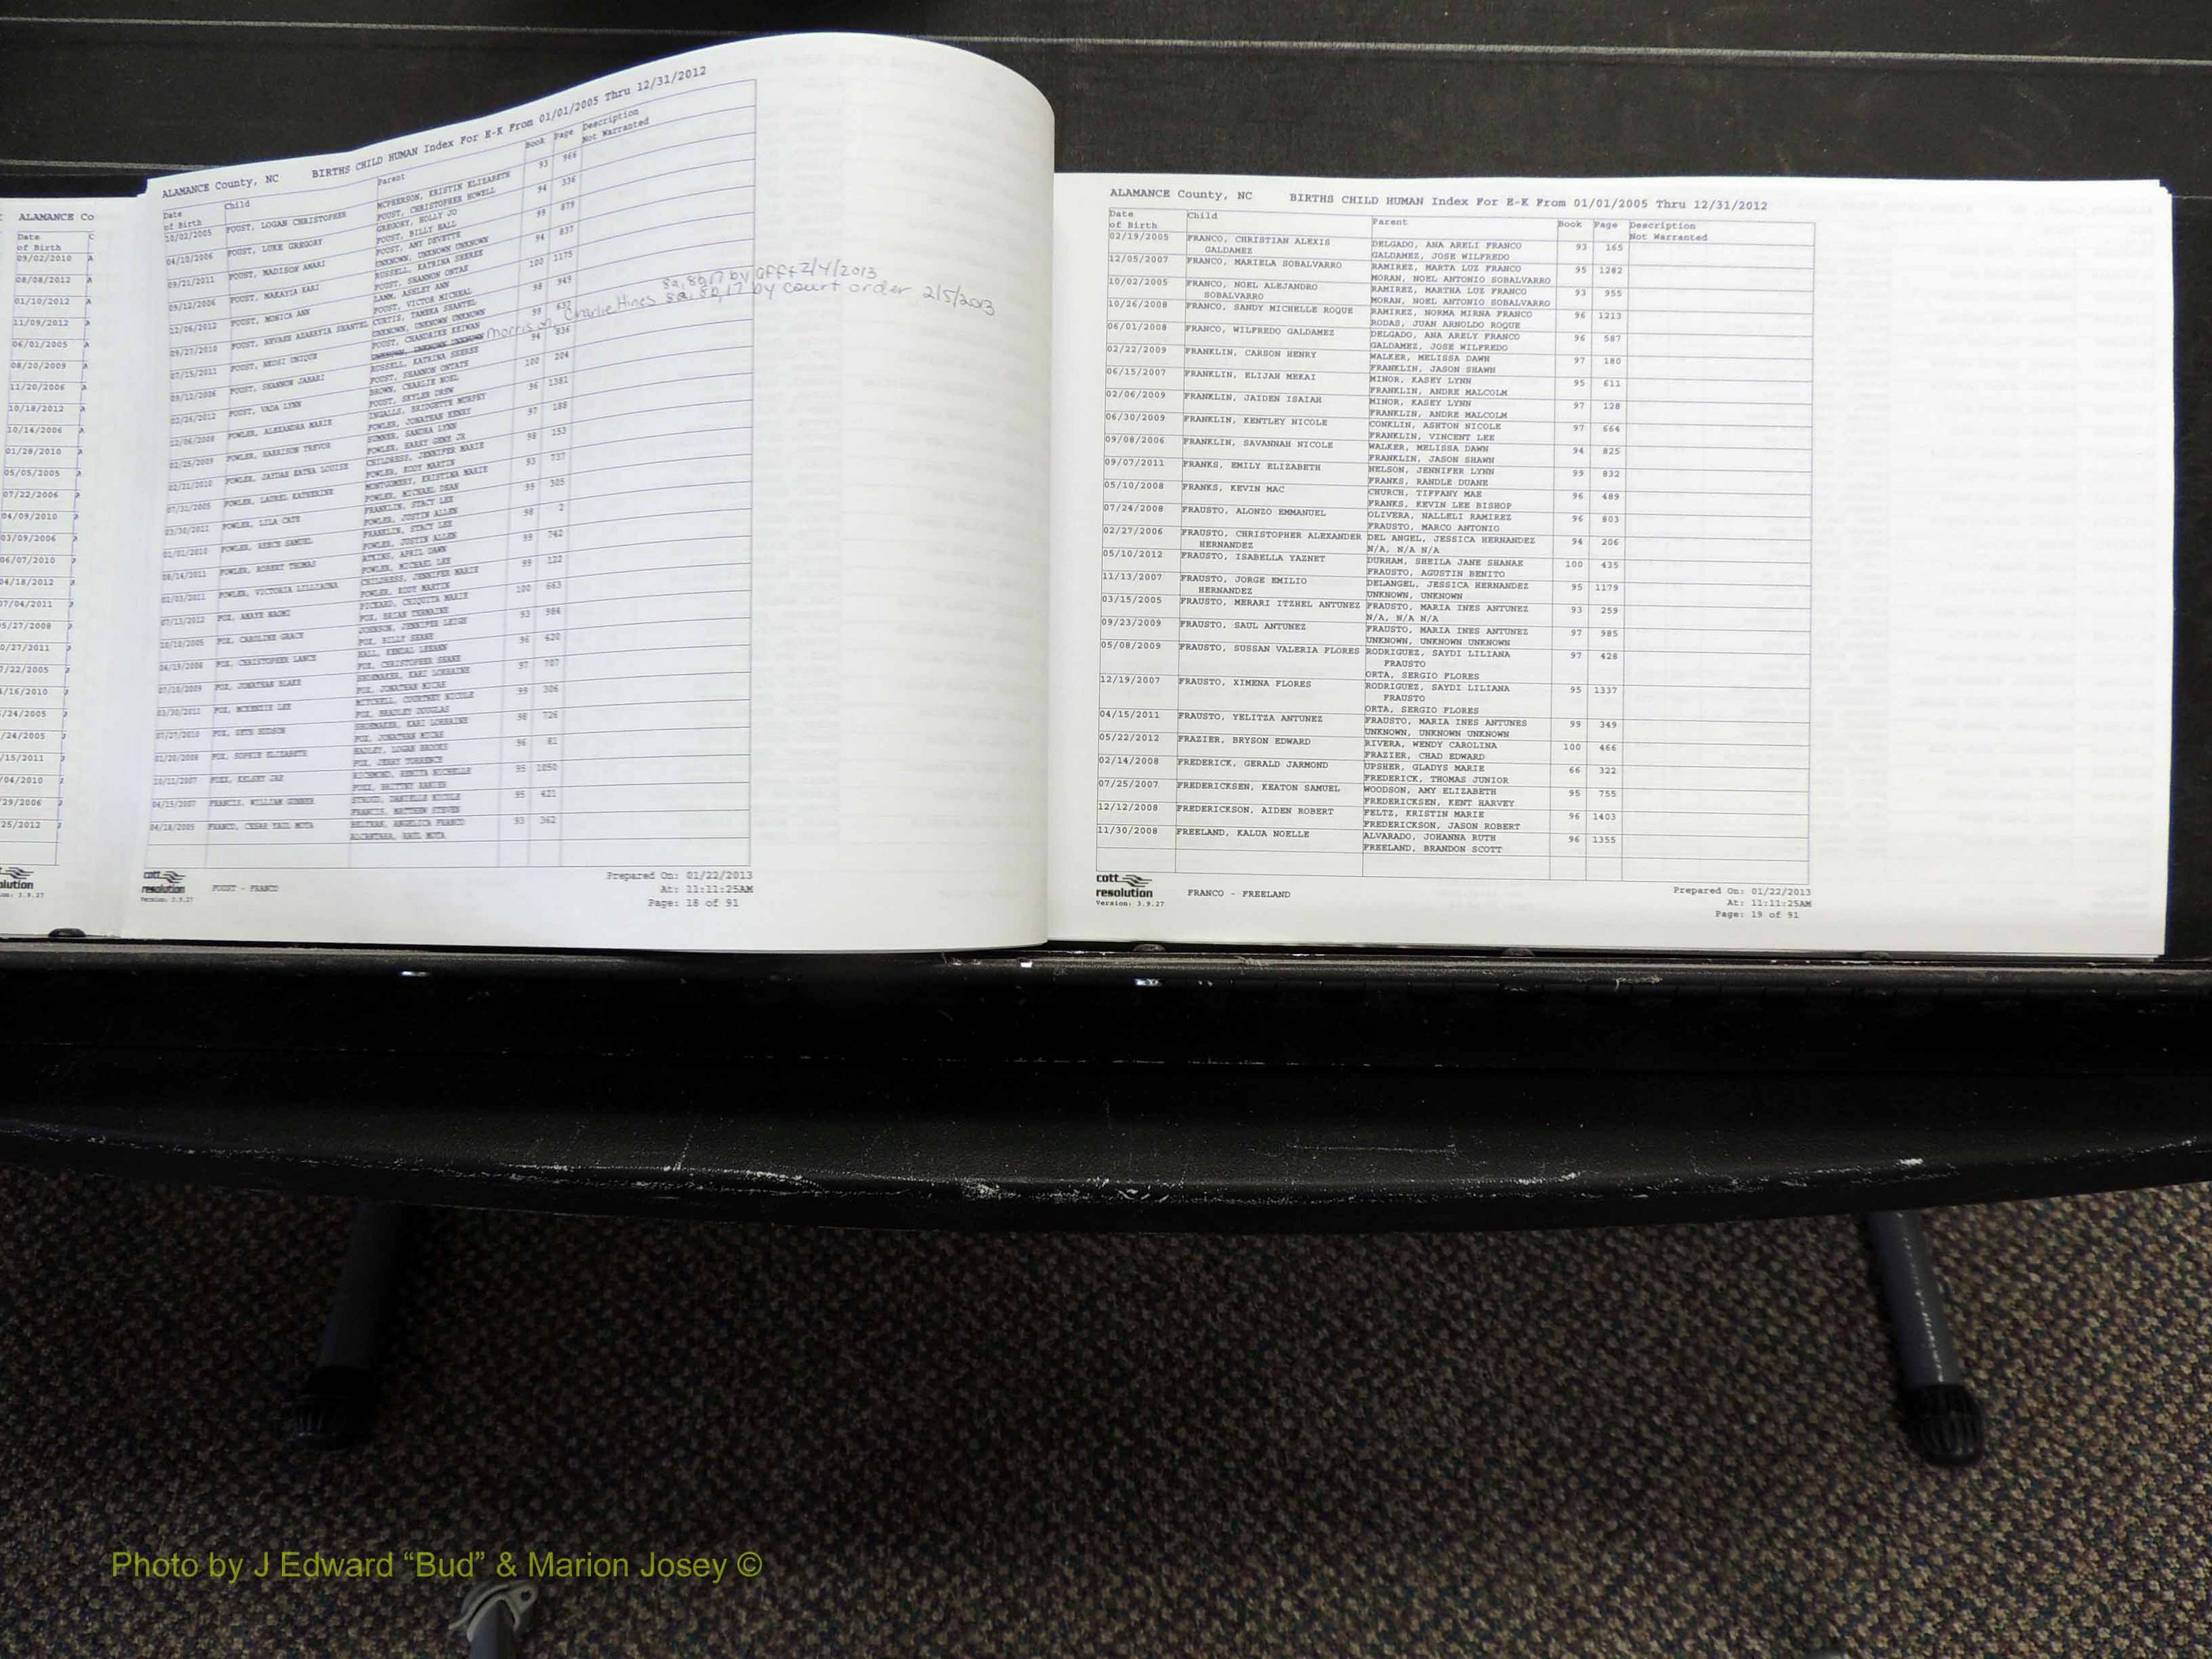 ALAMANCE Co
Date
of Birth
09/02/2010 A
08/08/2012 A
01/10/2012 A
11/09/2012 A
06/01/2005 A
08/20/2009 A
11/20/2006 A
10/18/2012 A
10/14/2006 A
01/28/2010 A
05/05/2005 A
07/22/2006
04/09/2010
03/09/2006
06/07/2010
04/18/2012
07/04/2011
ALAMANCE County, NC BIRTHS CHILD HUMAN Index For E-K From 01/01/2005 Thru 12/31/2012
Date of Birth Child Parent Book Page Description
Not Warranted
10/02/2005 FOUST, LOGAN CHRISTOPHER MCPHERSON, KRISTIN ELIZABETH 93 966
FOUST, CHRISTOPHER HOWELL
04/10/2006 FOUST, LUKE GREGORY GREGORY, HOLLY JO 94 336
FOUST, BILLY HALL
09/21/2011 FOUST, MADISON AMARI FOUST, AMY DEVETTE 99 879
UNKNOWN, UNKNOWN UNKNOWN
09/12/2006 FOUST, MAKAYIA KARI RUSSELL, KATRINA SHEREE 94 837
FOUST, SHANNON ONTAE
12/06/2012 FOUST, MONICA ANN LAMM, ASHLEY ANN 100 1175
FOUST, VICTOR MICHEAL
09/27/2010 FOUST, NEVAEH AZARAYIA SHANTEL CURTIS, TAMEKA SHANTEL 98 949
UNKNOWN, UNKNOWN UNKNOWN 8a, 8b, 17 by aff+ 2/4/2013
07/15/2011 FOUST, NEOSI UNIQUE FOUST, CHANDAIKE KEIWAN 99 637
UNKNOWN, UNKNOWN UNKNOWN Morrison, Charlie Hines 8a, 8b, 17 by court order 2/5/2013
09/12/2006 FOUST, SHANNON JABARI RUSSELL, KATRINA SHEREE 94 836
FOUST, SHANNON ONTATE
02/26/2012 FOUST, VADA LYNN BROWN, CHARLIE NOEL 100 204
FOUST, SKYLER DREW
12/06/2008 FOWLER, ALEXANDRA MARIE INGALLS, BRIDGETTE MURPHY 96 1381
FOWLER, JONATHAN HENRY
02/25/2009 FOWLER, HARRISON TREVOR SUMNER, SANDRA LYNN 97 188
FOWLER, HARRY GENE JR
02/21/2010 FOWLER, JAYDAE EATHA LOUISE CHILDRESS, JENNIFER MARIE 98 153
FOWLER, EDDY MARTIN
07/31/2005 FOWLER, LAUREL KATHERINE MONTGOMERY, KRISTINA MARIE 93 737
FOWLER, MICHAEL DEAN
03/30/2011 FOWLER, LILA CATE FRANKLIN, STACY LEE 99 305
FOWLER, JUSTIN ALLEN
01/01/2010 FOWLER, REECE SAMUEL FRANKLIN, STACY LEE 98 2
FOWLER, JUSTIN ALLEN
08/14/2011 FOWLER, ROBERT THOMAS ATKINS, APRIL DAWN 99 742
FOWLER, MICHAEL LEE
02/03/2011 FOWLER, VICTORIA LILLIAGNA CHILDRESS, JENNIFER MARIE 99 122
FOWLER, EDDY MARTIN
07/13/2012 FOX, AMAYE NAOMI PICKARD, CHIQUITA MARIE 100 663
FOX, BRIAN TERMAINE
10/10/2005 FOX, CAROLINE GRACE JOHNSON, JENNIFER LEIGH 93 984
FOX, BILLY SHANE
04/19/2008 FOX, CHRISTOPHER LANCE HALL, KENDAL LEEANN 96 420
FOX, CHRISTOPHER SHANE
07/10/2009 FOX, JONATHAN BLAKE SHOEMAKER, KARI LORRAINE 97 707
FOX, JONATHAN MICAH
03/30/2011 FOX, MCKENZIE LEE MITCHELL, COURTNEY NICOLE 99 306
FOX, BRADLEY DOUGLAS
07/27/2010 FOX, SETH HUDSON SHOEMAKER, KARI LORRAINE 98 726
FOX, JONATHAN MICAH
01/20/2008 FOX, SOPHIE ELIZABETH HADLEY, LOGAN BROOKE 96 81
FOX, JERRY TORRENCE
10/11/2007 FOXX, KELSEY JAE RICHMOND, RENITA NICHELLE 95 1050
FOXX, BRITTNY
04/15/2007 FRANCIS, WILLIAM GUNNER STROUD, DANIELLE NICOLE 95 421
FRANCIS, MATTHEW STEVEN
04/18/2005 FRANCO, CESAR YAZL MOTA BELTRAN, ANGELICA FRANCO 93 362
ALCANTARA, RAUL MOTA
cott
resolution
Version: 3.9.27
FOUST - FRANCO
Prepared On: 01/22/2013
At: 11:11:25AM
Page: 18 of 91
ALAMANCE County, NC BIRTHS CHILD HUMAN Index For E-K From 01/01/2005 Thru 12/31/2012
Date of Birth Child Parent Book Page Description
Not Warranted
02/19/2005 FRANCO, CHRISTIAN ALEXIS DELGADO, ANA ARELI FRANCO 93 165
GALDAMEZ GALDAMEZ, JOSE WILFREDO
12/05/2007 FRANCO, MARIELA SOBALVARRO RAMIREZ, MARTA LUZ FRANCO 95 1282
MORAN, NOEL ANTONIO SOBALVARRO
10/02/2005 FRANCO, NOEL ALEJANDRO RAMIREZ, MARTHA LUZ FRANCO 93 955
SOBALVARRO MORAN, NOEL ANTONIO SOBALVARRO
10/26/2008 FRANCO, SANDY MICHELLE ROQUE RAMIREZ, NORMA MIRNA FRANCO 96 1213
RODAS, JUAN ARNOLDO ROQUE
06/01/2008 FRANCO, WILFREDO GALDAMEZ DELGADO, ANA ARELY FRANCO 96 587
GALDAMEZ, JOSE WILFREDO
02/22/2009 FRANKLIN, CARSON HENRY WALKER, MELISSA DAWN 97 180
FRANKLIN, JASON SHAWN
06/15/2007 FRANKLIN, ELIJAH MEKAI MINOR, KASEY LYNN 95 611
FRANKLIN, ANDRE MALCOLM
02/06/2009 FRANKLIN, JAIDEN ISAIAH MINOR, KASEY LYNN 97 128
FRANKLIN, ANDRE MALCOLM
06/30/2009 FRANKLIN, KENTLEY NICOLE CONKLIN, ASHTON NICOLE 97 664
FRANKLIN, VINCENT LEE
09/08/2006 FRANKLIN, SAVANNAH NICOLE WALKER, MELISSA DAWN 94 825
FRANKLIN, JASON SHAWN
09/07/2011 FRANKS, EMILY ELIZABETH NELSON, JENNIFER LYNN 99 832
FRANKS, RANDLE DUANE
05/10/2008 FRANKS, KEVIN MAC CHURCH, TIFFANY MAE 96 489
FRANKS, KEVIN LEE BISHOP
07/24/2008 FRAUSTO, ALONZO EMMANUEL OLIVERA, NALLELI RAMIREZ 96 803
FRAUSTO, MARCO ANTONIO
02/27/2006 FRAUSTO, CHRISTOPHER ALEXANDER DEL ANGEL, JESSICA HERNANDEZ 94 206
HERNANDEZ N/A, N/A N/A
05/10/2012 FRAUSTO, ISABELLA YAZNET DURHAM, SHEILA JANE SHANAE 100 435
FRAUSTO, AGUSTIN BENITO
11/13/2007 FRAUSTO, JORGE EMILIO DELANGEL, JESSICA HERNANDEZ 95 1179
HERNANDEZ UNKNOWN, UNKNOWN
03/15/2005 FRAUSTO, MERARI ITZHEL ANTUNEZ FRAUSTO, MARIA INES ANTUNEZ 93 259
N/A, N/A N/A
09/23/2009 FRAUSTO, SAUL ANTUNEZ FRAUSTO, MARIA INES ANTUNEZ 97 985
UNKNOWN, UNKNOWN UNKNOWN
05/08/2009 FRAUSTO, SUSSAN VALERIA FLORES RODRIGUEZ, SAYDI LILIANA 97 428
FRAUSTO
ORTA, SERGIO FLORES
12/19/2007 FRAUSTO, XIMENA FLORES RODRIGUEZ, SAYDI LILIANA 95 1337
FRAUSTO
ORTA, SERGIO FLORES
04/15/2011 FRAUSTO, YELITZA ANTUNEZ FRAUSTO, MARIA INES ANTUNES 99 349
UNKNOWN, UNKNOWN UNKNOWN
05/22/2012 FRAZIER, BRYSON EDWARD RIVERA, WENDY CAROLINA 100 466
FRAZIER, CHAD EDWARD
02/14/2008 FREDERICK, GERALD JARMOND UPSHER, GLADYS MARIE 66 322
FREDERICK, THOMAS JUNIOR
07/25/2007 FREDERICKSEN, KEATON SAMUEL WOODSON, AMY ELIZABETH 95 755
FREDERICKSEN, KENT HARVEY
12/12/2008 FREDERICKSON, AIDEN ROBERT FELTZ, KRISTIN MARIE 96 1403
FREDERICKSON, JASON ROBERT
11/30/2008 FREELAND, KALUA NOELLE ALVARADO, JOHANNA RUTH 96 1355
FREELAND, BRANDON SCOTT
cott
resolution
Version: 3.9.27
FRANCO - FREELAND
Prepared On: 01/22/2013
At: 11:11:25AM
Page: 19 of 91
Photo by J Edward “Bud” & Marion Josey ©